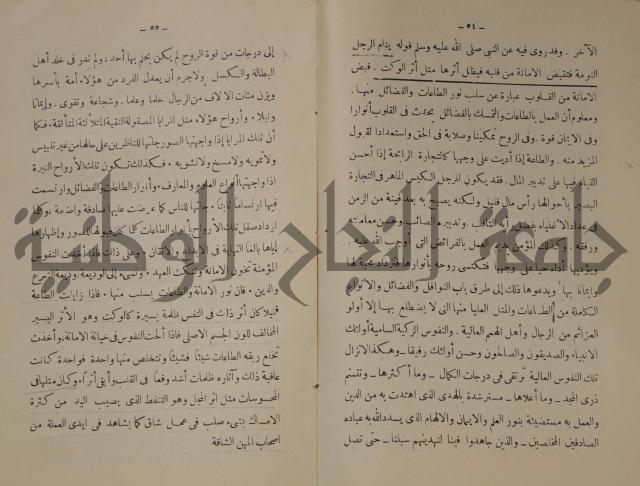 — ٥٤ —
الآخر . وقد روى فيه عن النبي صلى الله عليه وسلم قوله ينام الرجل
النومة فتقبض الامانة من قلبه فيظل أثرها مثل أثر الوكت . قبض
الامانة من القلوب عبارة عن سلب نور الطاعات والفضائل منها .
ومعلوم أن العمل بالطاعات والتمسك بالفضائل يحدث فى القلوب أنوارا
وفى الايمان قوة . وفى الروح تمكينا وصلابة فى الحق واستعدادا لقبول
المزيد منه . والطاعة إذا أديت على وجهها كالتجارة الرابحة إذا أحسن
القيام فيها على تدبير المال . فقد يكون للرجل الكيس الماهر فى التجارة
البصير بأحوالها رأس مال قليل ولكنه يصبح به بعد فينة من الزمن
فى عداد الاغنياء بفضل رأيه الثاقب . وتدبيره الصائب . وحسن معاملته
ورفقه . وكذلك المؤمن يديم العمل بالفرائض التى أوجب الله عليه .
ويؤديها أداء حيا على وجهها فتكتسى روحه بأنوارها فتزداد محبة لها
وإيمانا بها ويدعوها ذلك إلى طرق باب النوافل والفضائل والأنواع
الكاملة من الطاعات والمثل العليا منها التى لا يضطلع بها إلا أولو
العزائم من الرجال وأهل الهمم العالية . والنفوس الزكية السامية أولئك
الانبياء والصديقون والصالحون وحسن أولئك رفيقا — وهكذا لا تزال
تلك النفوس العالية ترتقى فى درجات الكمال — وما أكثرها — وتتسنم
ذرى المجد — وما أعلاها — مسترشدة بالهدى الذى اهتدت به من الدين
والعمل به مستضيئة بنور العلم والايمان والالهام الذى يسدد الله به عباده
الصادقين المخلصين — والذين جاهدوا فينا لنهدينهم سبلنا — حتى تصل
— ٥٥ —
إلى درجات من قوة الروح لم يكن يحلم بها أحد، ولم تدر فى خلد أهل
البطالة والكسل ولا جرم أن يعدل الفرد من هؤلاء أمة بأسرها
ويزن مئات الالاف من الرجال حلما وعلما. وشجاعة وتقوى . وإيمانا
ونبلا . وأرواح هؤلاء مثل المرايا المصقولة النقية المتلألئة المتألقة . فكما
أن تلك المرايا إذا واجهتها الصور جلتها للناظرين على حالها من غير تلبيس
ولا تمويه ولا مسخ ولا تشويه . فكذلك تكون تلك الأرواح النيرة
اذا واجهتها أنواع العلوم والمعارف . وأنوار الطاعات والفضائل وارتسمت
فيها ارتساما ثابتا . جلتها للناس كما عرضت عليها صادقة واضحة . وكلما
ازداد صقل تلك الأرواح بأنوار الطاعات كلما كان قبولها للصور وإظهارها
إياها بالغا النهاية فى الابداع والاتقان . وعلى ذلك فاذا أخذت النفوس
المؤمنة تخون الامانة وتنكث العهد . وتسىء إلى الوديعة . وديعة الشرع
والدين . فان نور الامانة والطاعات يسلب منها . فاذا زايلت الطاعة
قليلا كان أثر ذلك فى النفس ظلمة يسيرة كالوكت وهو الأثر اليسير
المخالف للون الجسم الاصلى فاذا ألحت النفوس فى خيانة الامانة، وأخذت
تخلع ربقة الطاعات شيئا فشيئا وتتخلص منها واحدة فواحدة كانت
عاقبة ذلك وآثاره ظلمات أشد وقعا فى القلب وأبقى أثرا . وكان مثلها فى
المحسوسات مثل أثر المجل وهو التنفط الذى يصيب اليد من كثرة
الامساك بشىء صلب فى عمل شاق كما يشاهد فى أيدى العملة من
أصحاب المهن الشاقة
جامعة النجاح الوطنية